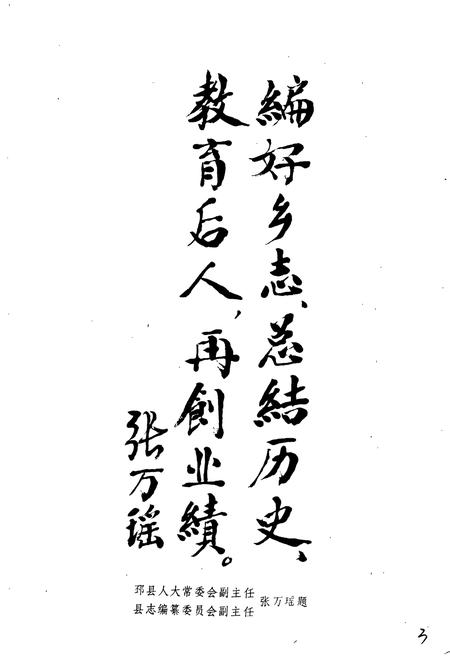 編好乡志、总結历史、
教育后人,再創业績。
张万瑶
邳县人大常委会副主任
县志编纂委员会副主任
张万瑶题
3